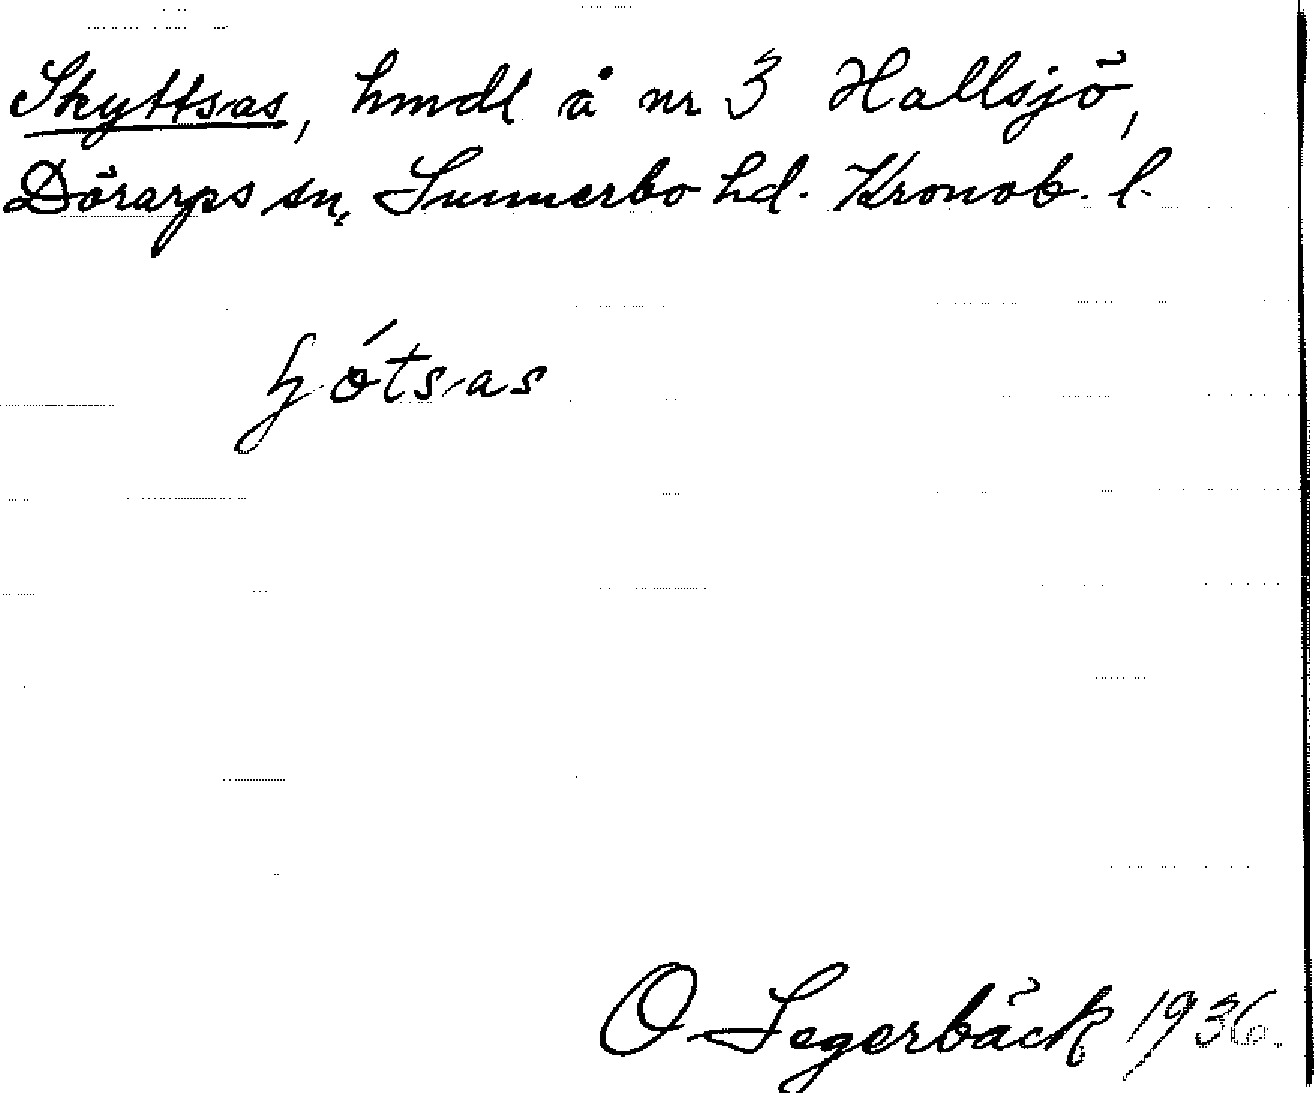 Skyttsas, hmdl å nr 3 Hallsjö,
Dörarps sn, Sunnerbo hd. Kronob. l.
ɧótsas
O Segerbäck 1936.